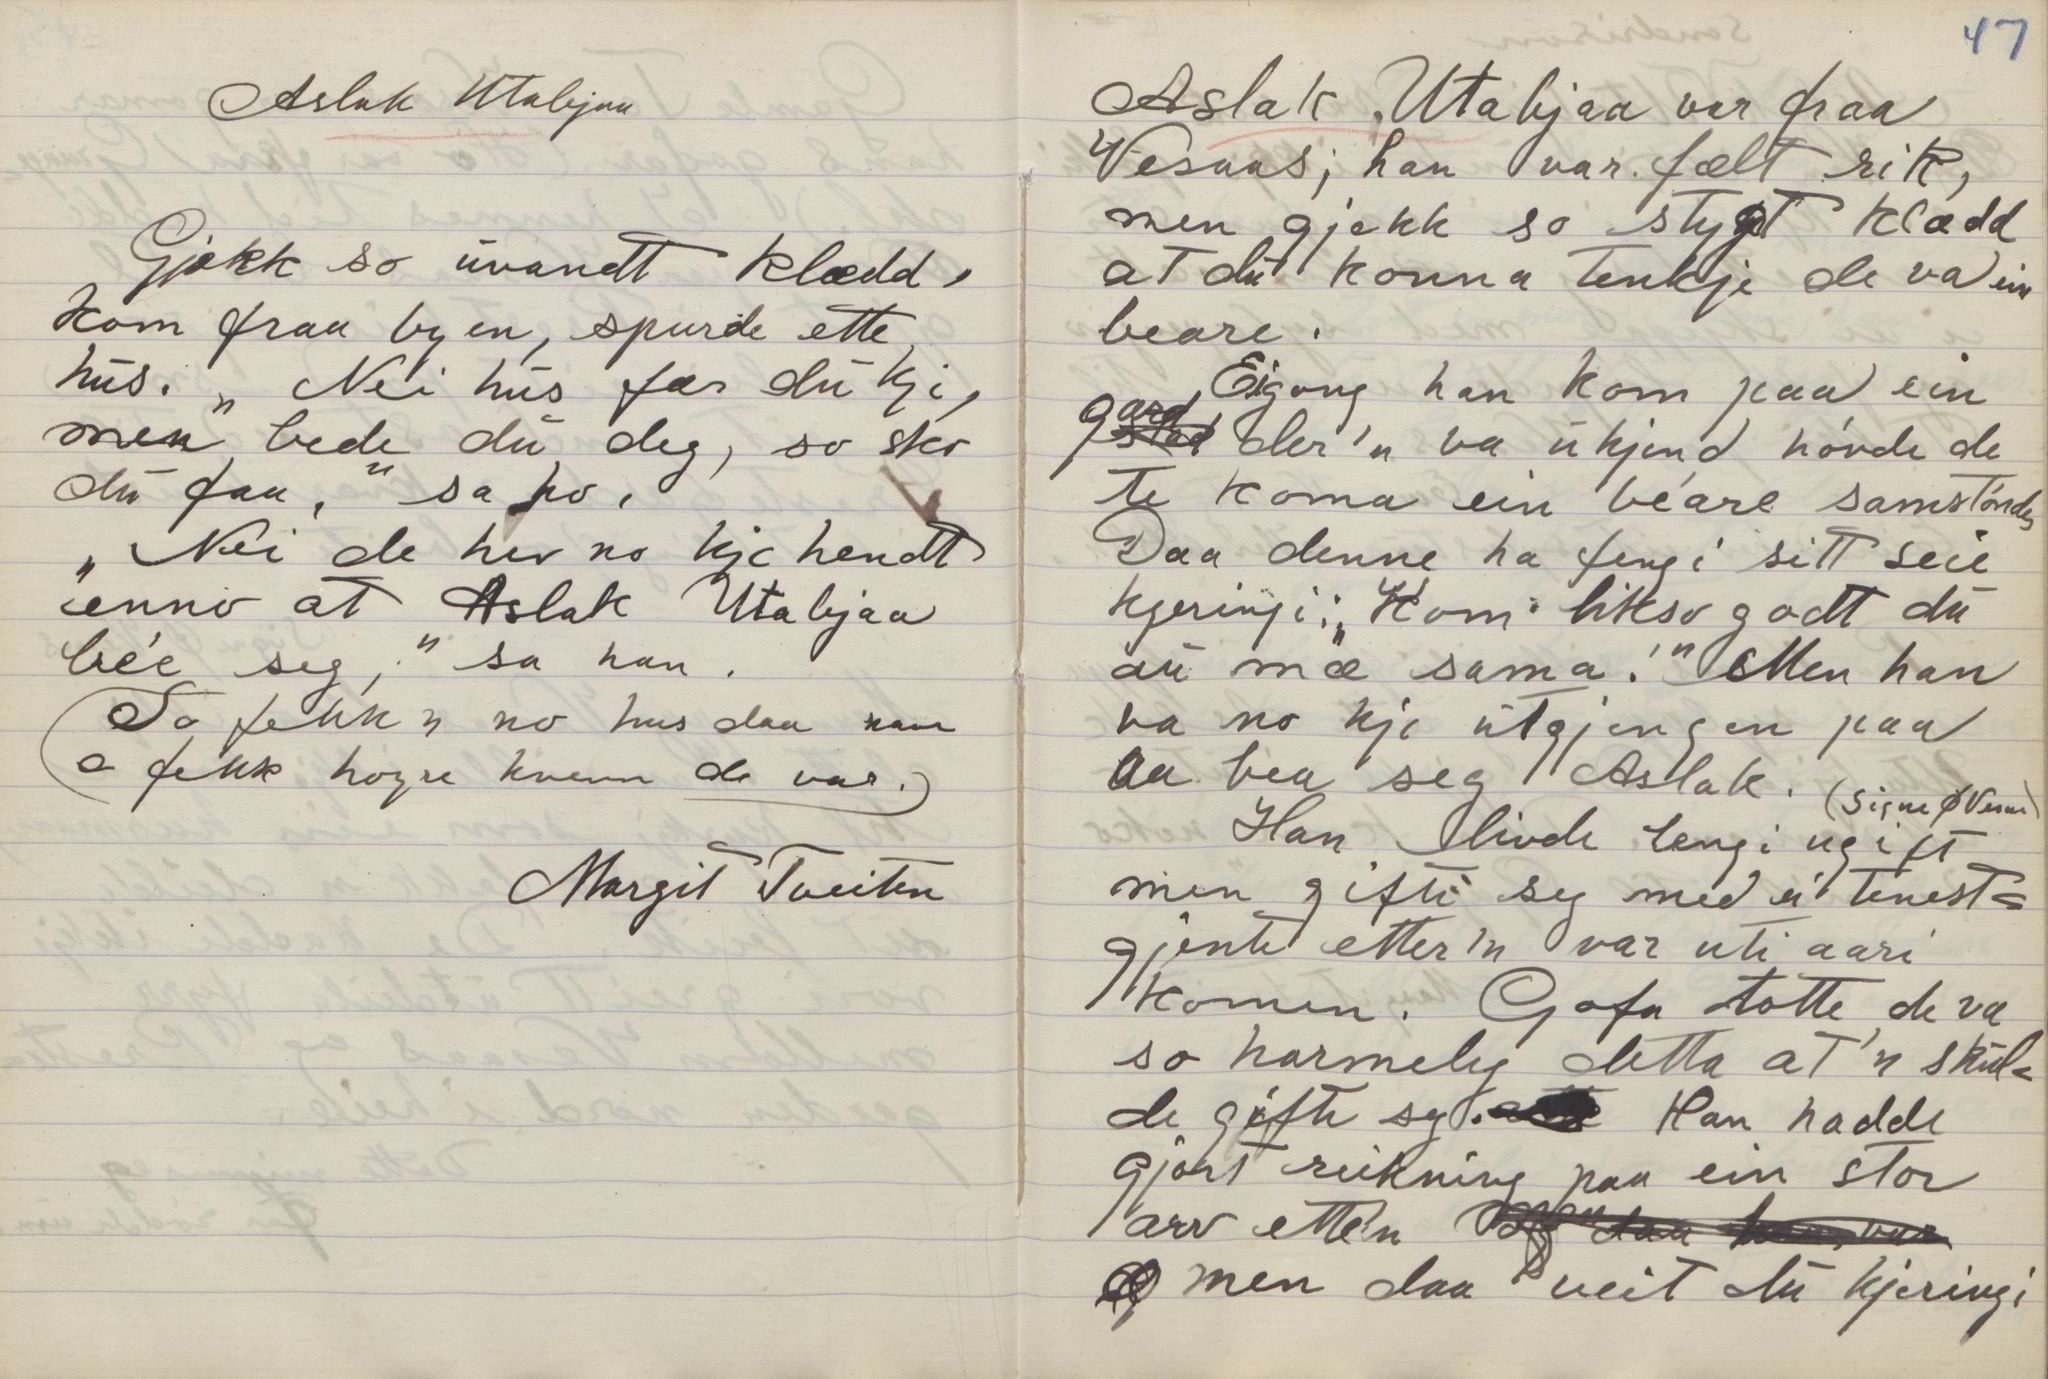 Aslak Utabjaa
Gjekk so uvandt klædd,
kom fraa byen, spurde ette
hus. „Nei hus fær du kji,
men bede du deg, so sko
du faa," sa ho.
„Nei de hev no kje hendt
enno at Aslak Utabjaa
bée seg," sa han.
(So fekk'n no hus daa
fekk høyre kvenn de var.)
Margit Tveiten
47
Aslak Utabjaa var fraa
Vesaas; han var fælt rik,
men gjekk so stygt klædd
at du konna tenkje de va ein
beare.
Eigong han kom paa ein
gard der'n va ukjend hóvde de
te koma ein béare samstóndes
Daa denne ha fengi sitt seie
kjeringi: „Kom likso godt du
au mæ sama!" Men han
va no kje utgjengen paa
aa bea seg Aslak. (Signe Ø Vesaa)
Han livde lengi ugift
men gifte seg med ei tenest=
gjente etter'n var uti aari
komen. Gofa totte de va
so harmeleg detta at'n skul=
de gifte seg. Han hadde
gjort reikning paa ein stor
arv ette'n
men daa veit du kjeringi